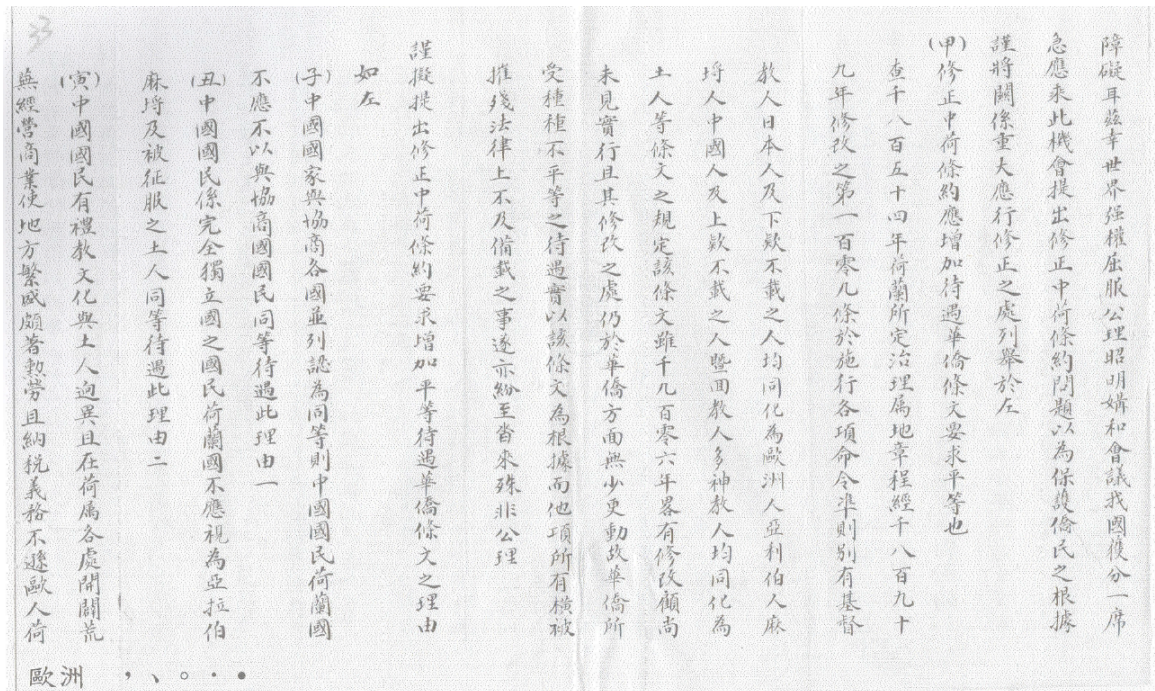 障礙耳茲幸世界强權屈服公理昭明媾和會議我國獲分一席
急應乘此機會提出修正中荷條約問題以為保護僑民之根據
謹將關係重大應行修正之處列舉於左
(甲)修正中荷條約應增加待遇華僑條文要求平等也
查千八百五十四年荷蘭所定治理属地章程經千八百九十
九年修改之第一百零九條於施行各項命令準則别有基督
教人日本人及下欵不載之人均同化為歐洲人亞利伯人麻
埒人中國人及上欵不載之人暨回教人多神教人均同化為
土人等條文之規定該條文雖千九百零六年畧有修改顧尚
未見實行且其修改之處仍於華僑方面無少更動故華僑所
受種種不平等之待遇實以該條文為根據而他項所有橫被
摧殘法律上不及備載之事遂亦紛至沓來殊非公理
謹擬提出修正中荷條約要求增加平等待遇華僑條文之理由
如左
(子)中國國家與協商各國並列認為同等則中國國民荷蘭國
不應不以與協商國國民同等待遇此理由一
(丑)中國國民係完全獨立國之國民荷蘭國不應視為亞拉伯
麻埒及被征服之土人同等待遇此理由二
(寅)中國國民有禮教文化與土人迥異且在荷属各處開闢荒
蕪經營商業使地方繁盛頗著勲勞且納税義務不遜歐人荷
33
歐洲 ，、。．•